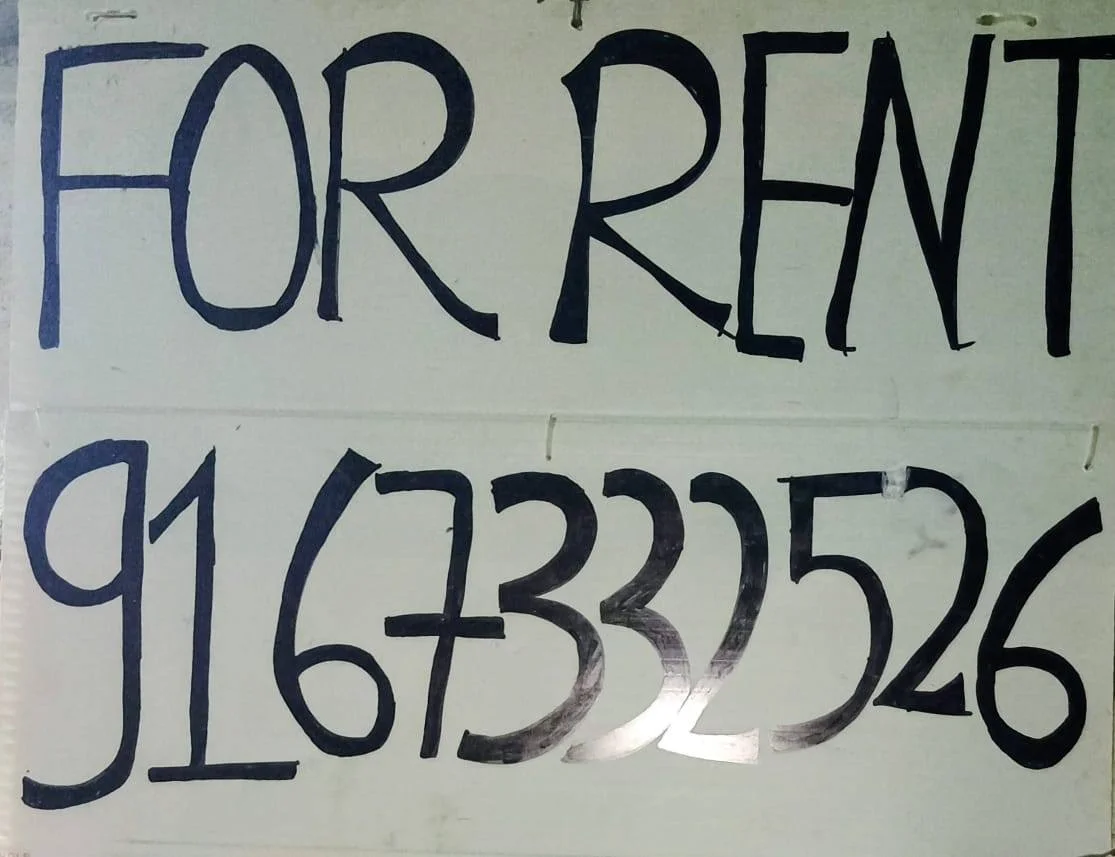 FOR RENT
9167332526